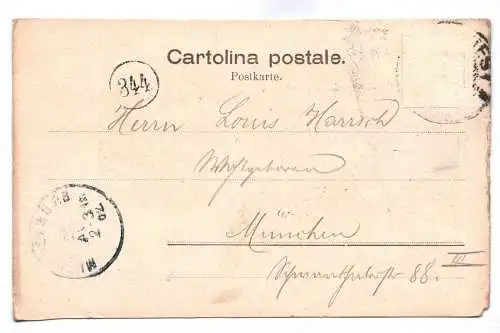 Cartolina postale.
Postkarte.
344
Herrn Louis Harrsch
Wohlgeboren
München
Schwanthalerstr 88. III